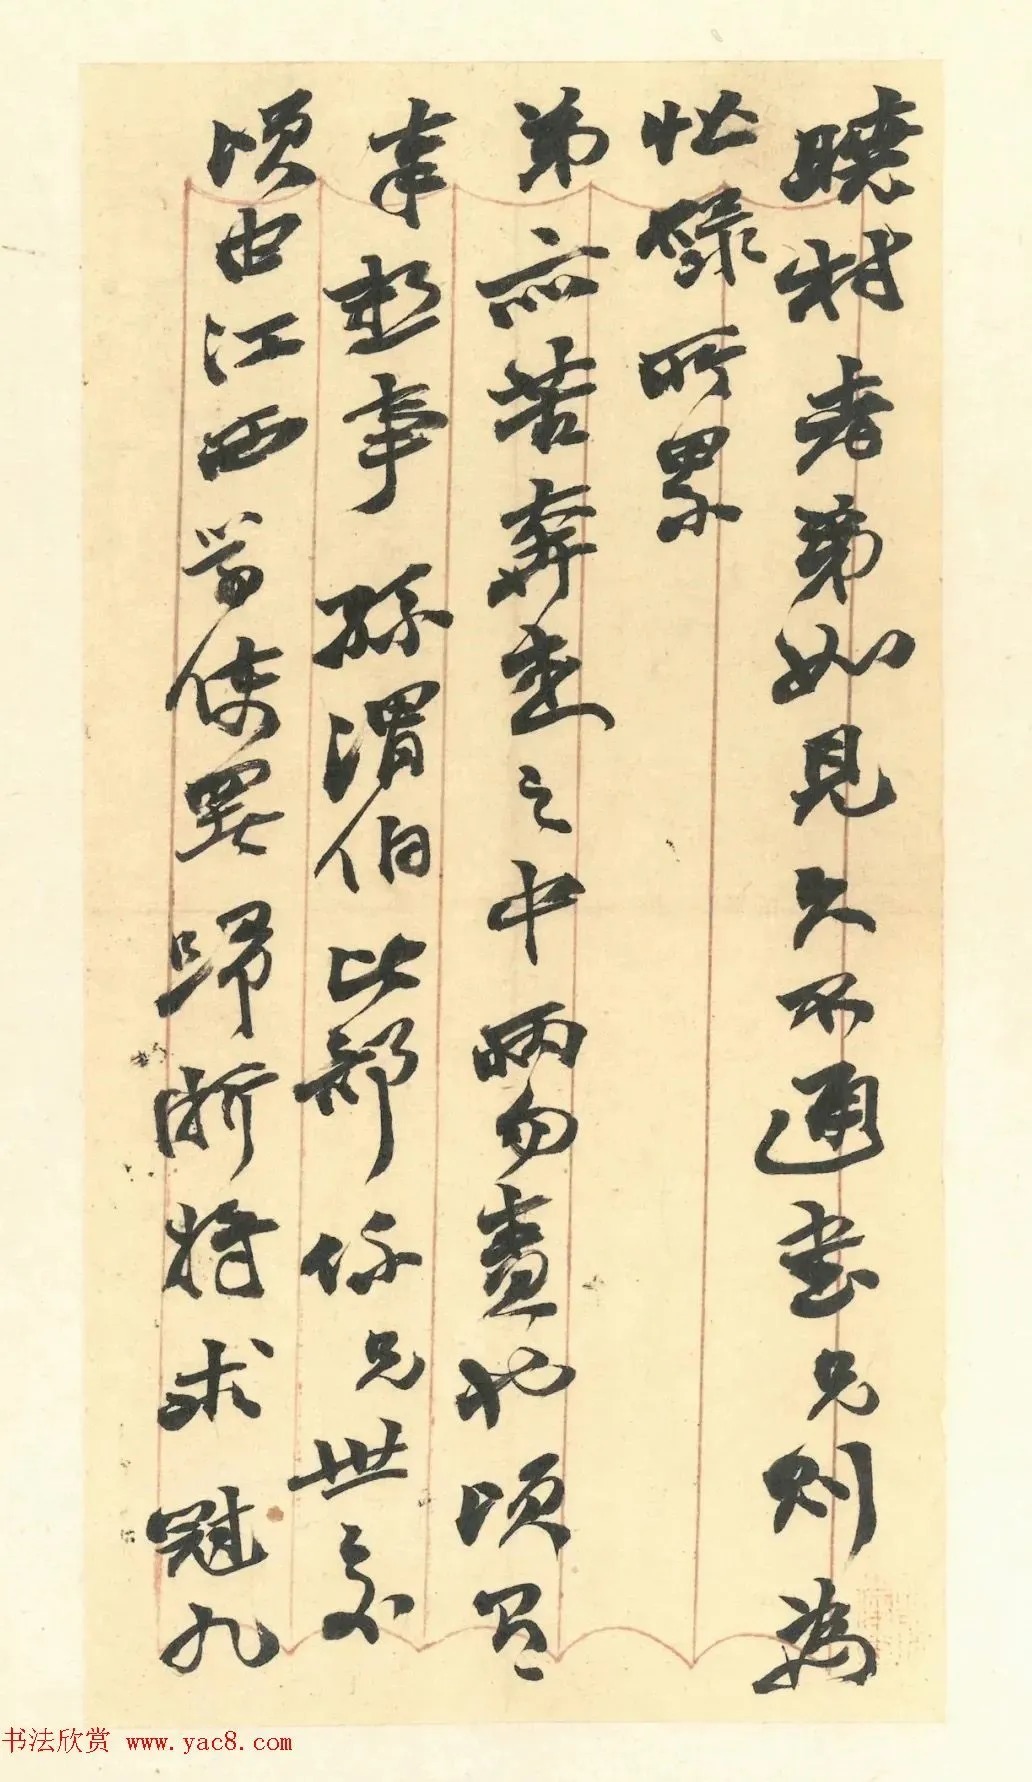 曉村老弟如見久不通書兄則為
忙碌所累
弟亦苦奔走之中兩勿盡也頃
奉懇事孫渭伯比部係兄世交
頃由江西學使署歸浙將求冠九
书法欣赏 www.yac8.com